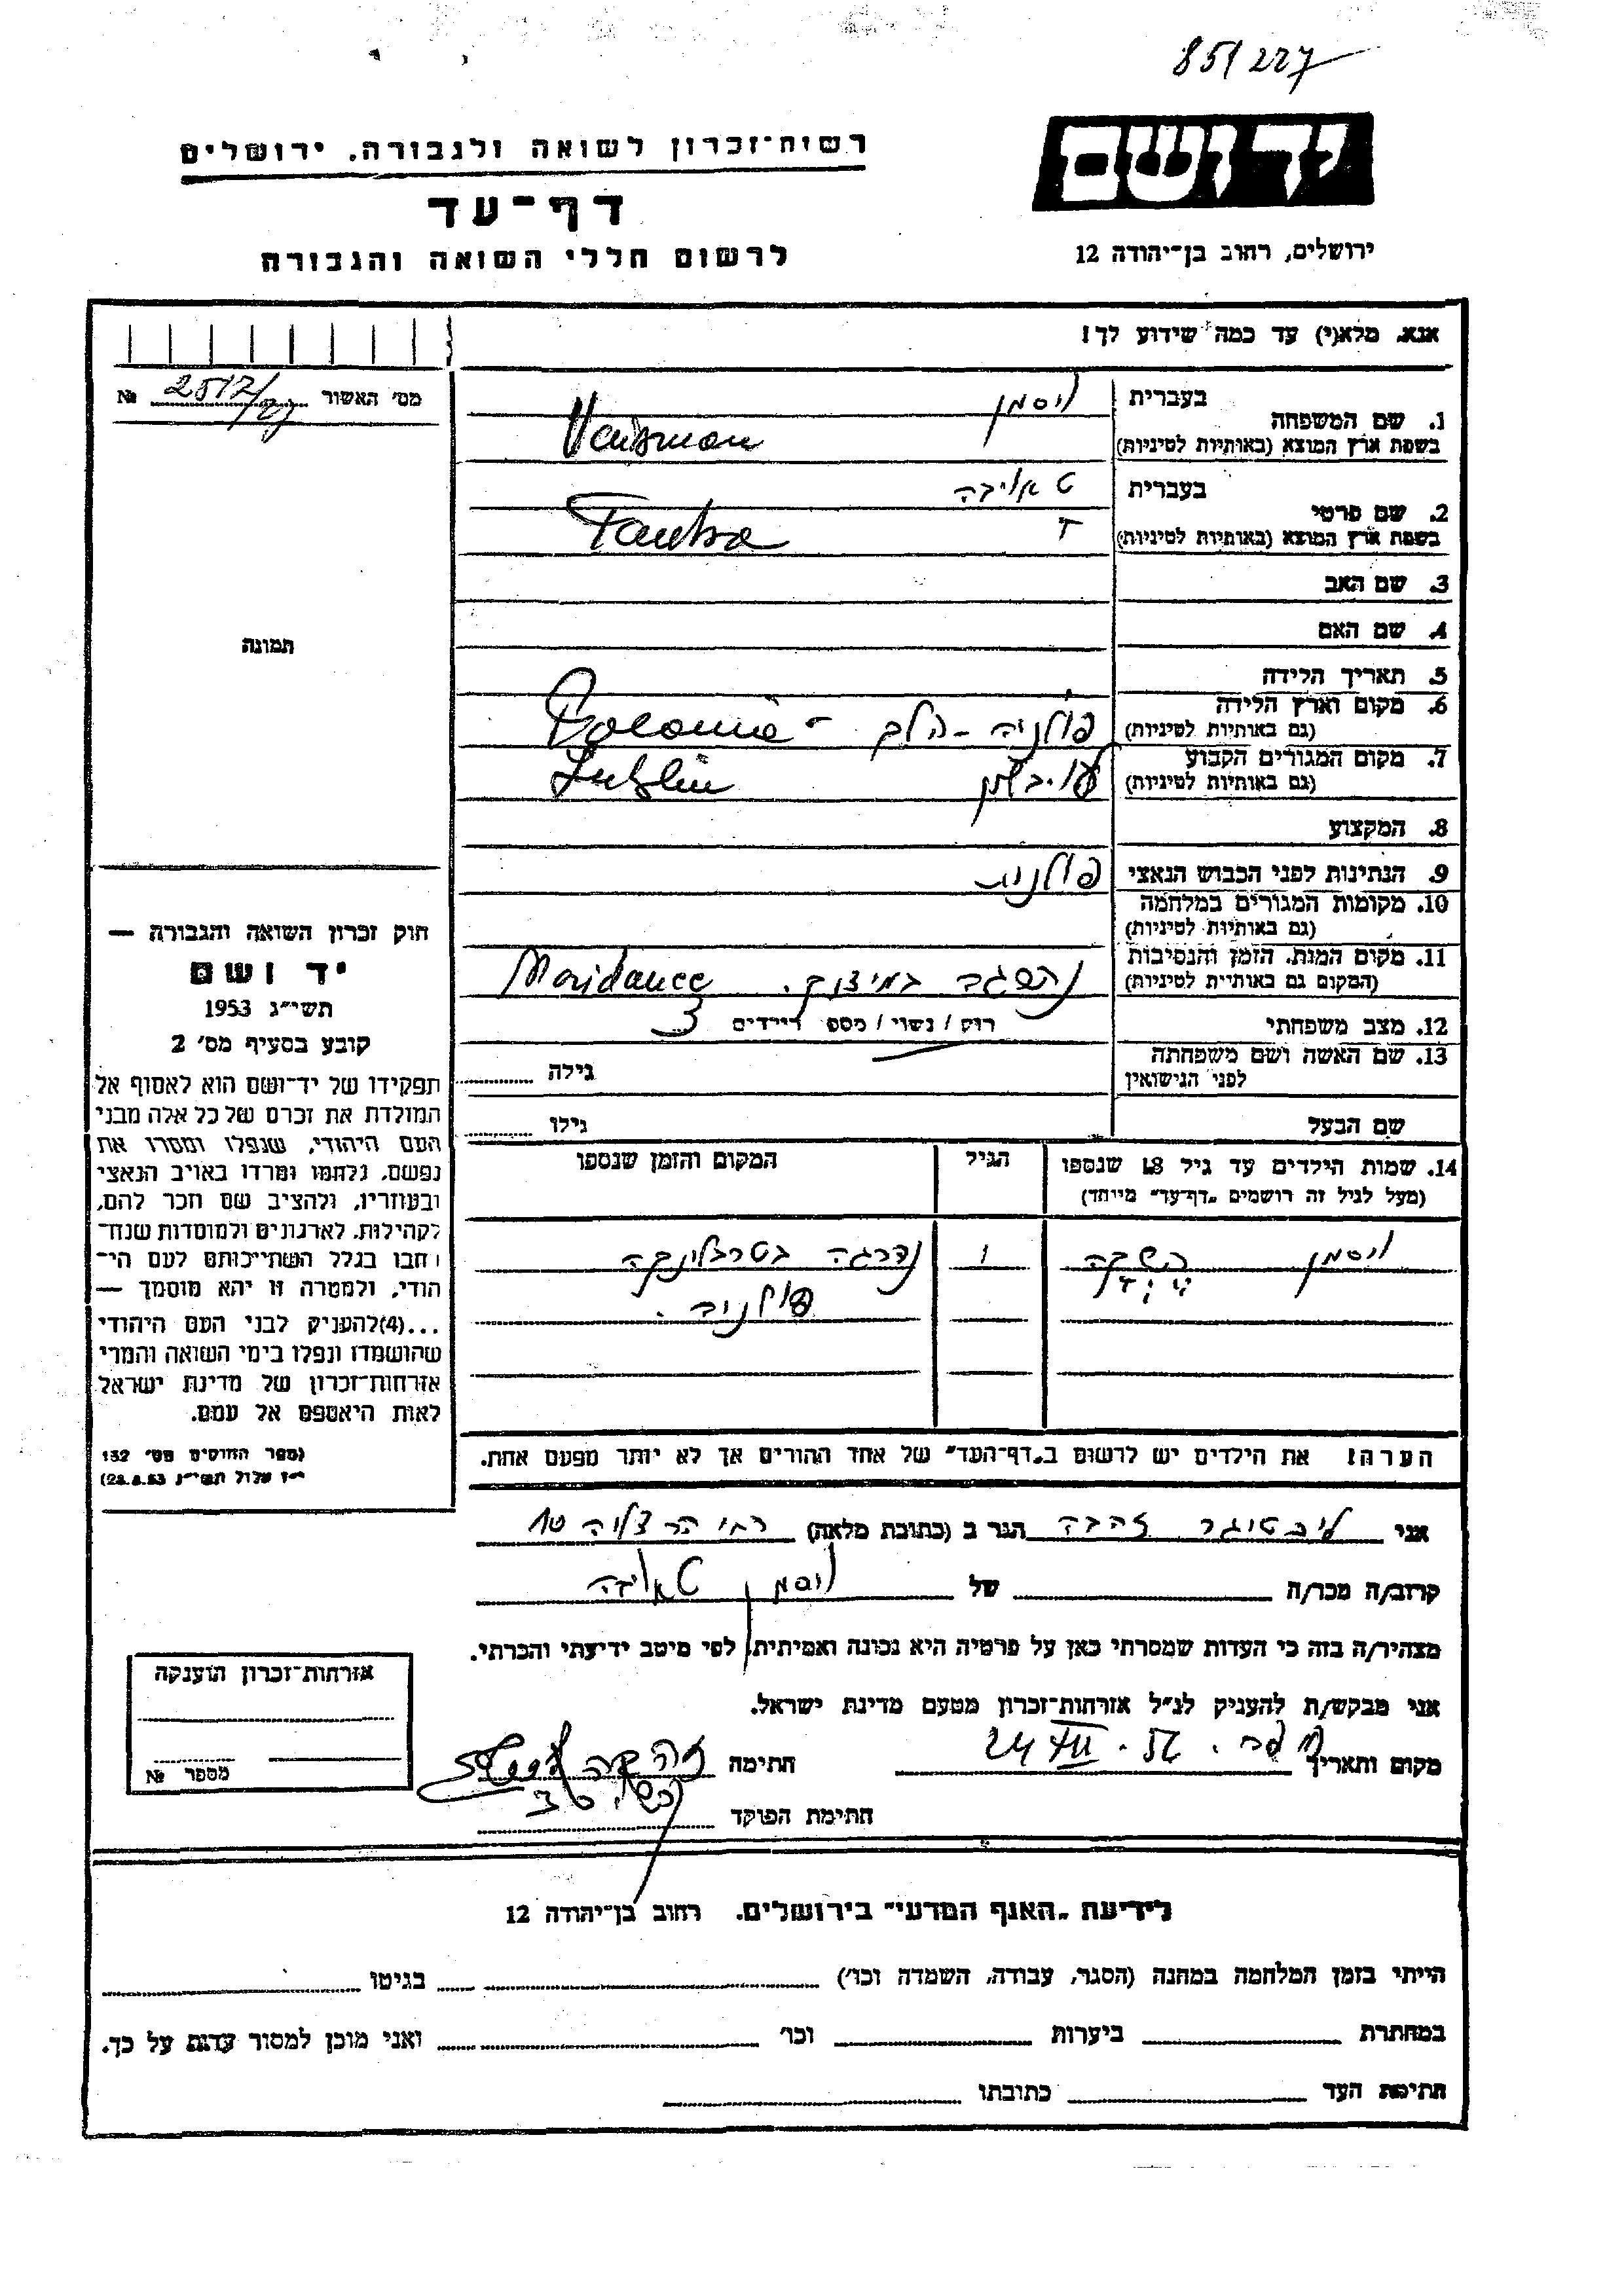 85/227
רשות־זכרון לשואה ולגבורה, ירושלים
יד ושם
דף־עד
לרשום חללי השואה והגבורה
ירושלים, רחוב בן־יהודה 12
אנא, מלא(י) עד כמה שידוע לך!
מס׳ האשור № 2512/
1. שם המשפחה בעברית ויסמן
בשפת ארץ המוצא (באותיות לטיניות) Vaisman
2. שם פרטי בעברית
בשפת ארץ המוצא (באותיות לטיניות) Tauba
3. שם האב
4. שם האם
תמונה
5. תאריך הלידה
6. מקום וארץ הלידה
(גם באותיות לטיניות) פולניה Polonia
7. מקום המגורים הקבוע
(גם באותיות לטיניות) Lublin
8. המקצוע
9. הנתינות לפני הכבוש הנאצי פולנית
10. מקומות המגורים במלחמה
(גם באותיות לטיניות)
11. מקום המות, הזמן והנסיבות
(המקום גם באותיות לטיניות)
12. מצב משפחתי רוק / נשוי / מספר הילדים 3
13. שם האשה ושם משפחתה
לפני הנישואין גילה
שם הבעל גילו
14. שמות הילדים עד גיל 18 שנספו הגיל המקום והזמן שנספו
(מעל לגיל זה רושמים „דף־עד״ מיוחד)
ויסמן 1 נהרגה בטרבלינקה
פולניה.
חוק זכרון השואה והגבורה —
יד ושם
תשי״ג 1953
קובע בסעיף מס׳ 2
תפקידו של יד־ושם הוא לאסוף אל
המולדת את זכרם של כל אלה מבני
העם היהודי, שנפלו ומסרו את
נפשם, נלחמו ומרדו באויב הנאצי
ובעוזריו, ולהציב שם וזכר להם,
לקהילות, לארגונים ולמוסדות שנח־
רבו בגלל השתייכותם לעם הי־
הודי, ולמטרה זו יהא מוסמך —
...(4)להעניק לבני העם היהודי
שהושמדו ונפלו בימי השואה והמרי
אזרחות־זכרון של מדינת ישראל
לאות היאספם אל עמם.
(ספר החוקים מס׳ 132
י״ז אלול תשי״ג 28.8.53)
הערה! את הילדים יש לרשום ב„דף־העד״ של אחד ההורים אך לא יותר מפעם אחת.
אני זהבה הגר ב (כתובת מלאה) הרצליה 10
קרוב/ה מכר/ה של ויסמן
מצהיר/ה בזה כי העדות שמסרתי כאן על פרטיה היא נכונה ואמיתית, לפי מיטב ידיעתי והכרתי.
אני מבקש/ת להעניק לנ״ל אזרחות־זכרון מטעם מדינת ישראל.
מקום ותאריך 24 VII . 56 חתימה
חתימת הפוקד
אזרחות־זכרון הוענקה
מספר №
לידיעת „האגף המדעי״ בירושלים, רחוב בן־יהודה 12
הייתי בזמן המלחמה במחנה (הסגר, עבודה, השמדה וכו׳) בגיטו
במחתרת ביערות וכו׳ ואני מוכן למסור עדות על כך.
חתימת העד כתובתו